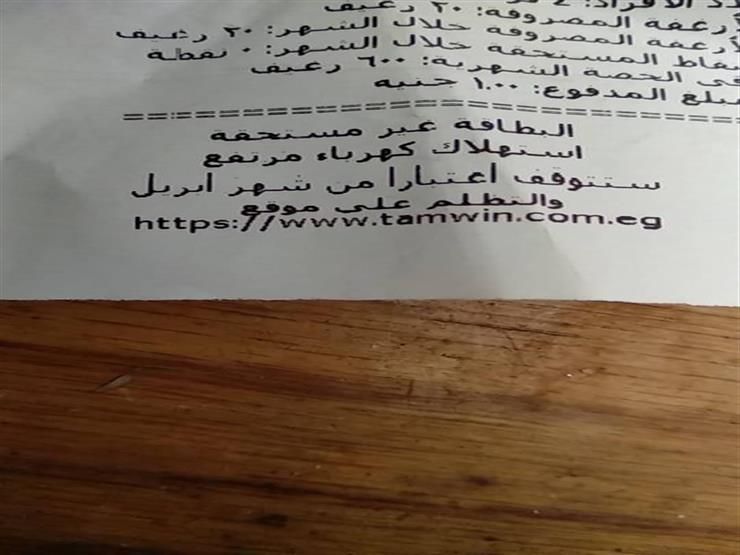 الأفراد: 4
أرغفة المصروفة: ٢٠ رغيف
أرغفة المصروفة خلال الشهر: ٢٠ رغيف
قاط المستحقة خلال الشهر: ٠ نقطة
فى الحصة الشهرية: ٦٠٠ رغيف
مبلغ المدفوع: ١.٠٠ جنيه
==============================
البطاقة غير مستحقة
استهلاك كهرباء مرتفع
ستتوقف اعتبارا من شهر ابريل
والتظلم على موقع
https://www.tamwin.com.eg